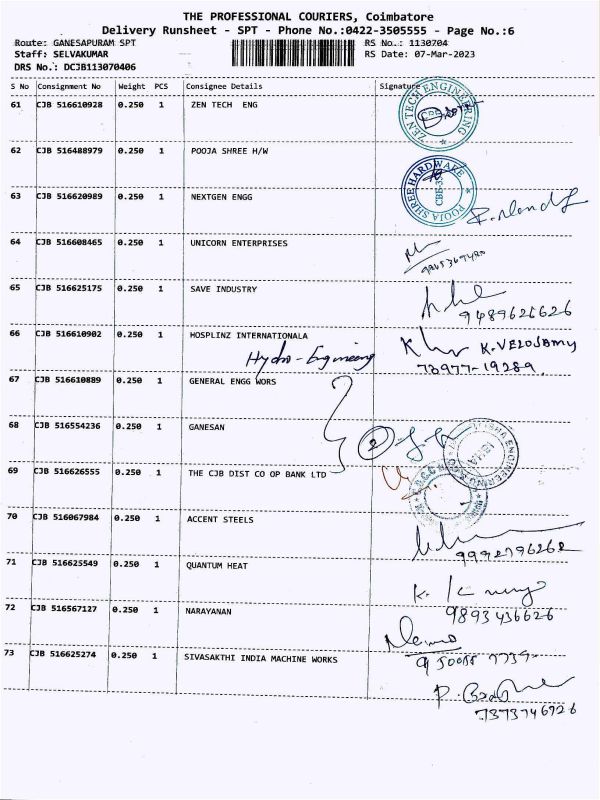 THE PROFESSIONAL COURIERS, Coimbatore
Delivery Runsheet - SPT - Phone No.:0422-3505555 - Page No.:6
Route: GANESAPURAM SPT RS No.: 1130704
Staff: SELVAKUMAR RS Date: 07-Mar-2023
DRS No.: DCJB113070406
S No Consignment No Weight PCS Consignee Details Signature
61 CJB 516610928 0.250 1 ZEN TECH ENG
ZEN TECH ENGINEERING
62 CJB 516488979 0.250 1 POOJA SHREE H/W
POOJA SHREE HARDWARE
CBE-35
63 CJB 516620989 0.250 1 NEXTGEN ENGG
64 CJB 516608465 0.250 1 UNICORN ENTERPRISES
65 CJB 516625175 0.250 1 SAVE INDUSTRY
9489626626
66 CJB 516610902 0.250 1 HOSPLINZ INTERNATIONALA
Hydro-Engineering
K. VELUSAMY
73977-19289
67 CJB 516610889 0.250 1 GENERAL ENGG WORS
68 CJB 516554236 0.250 1 GANESAN
2
69 CJB 516626555 0.250 1 THE CJB DIST CO OP BANK LTD
70 CJB 516067984 0.250 1 ACCENT STEELS
9992796262
71 CJB 516625549 0.250 1 QUANTUM HEAT
9893436626
72 CJB 516567127 0.250 1 NARAYANAN
73 CJB 516625274 0.250 1 SIVASAKTHI INDIA MACHINE WORKS
7373746926